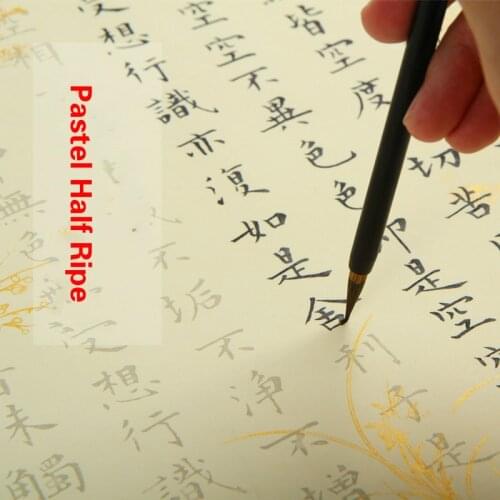 皆空度一切苦
空空不異色色即是空空
受想行識亦復如是舍利子是
相不垢不淨不增
無色受想行識
觸
Pastel Half Ripe